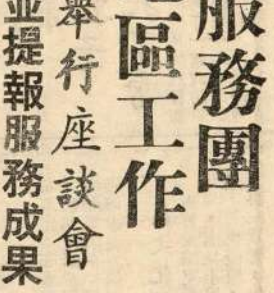 服務團
區工作
舉行座談會
並提報服務成果